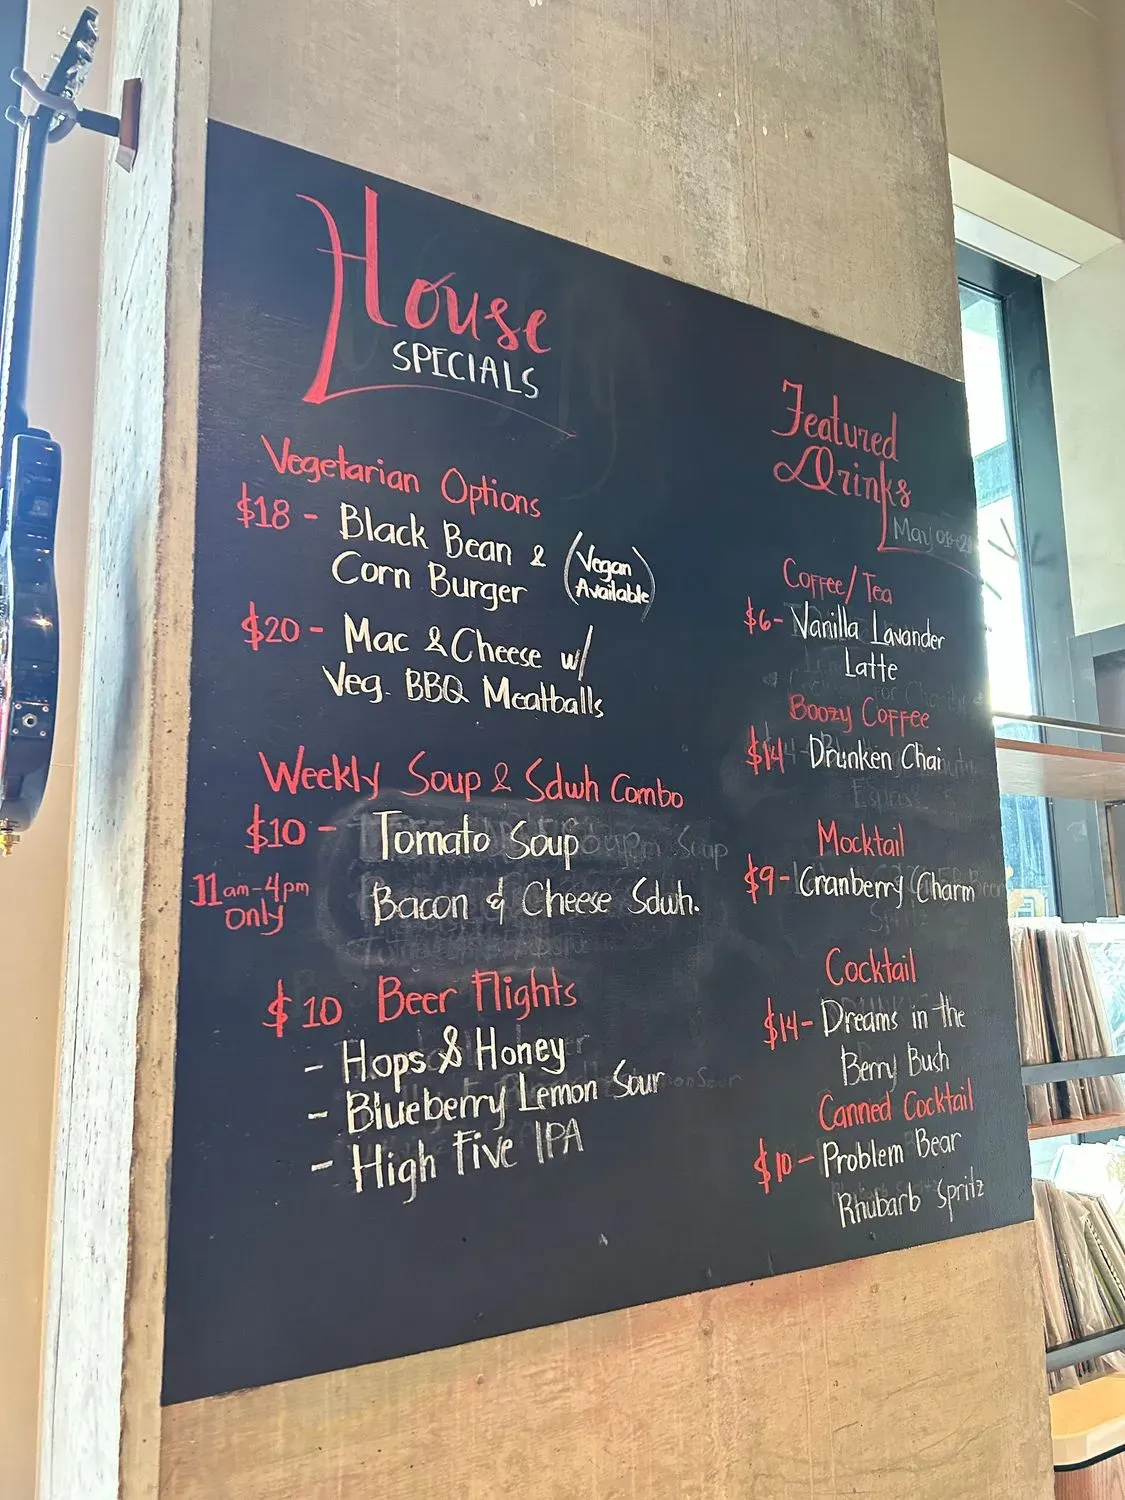 House
SPECIALS
Vegetarian Options
$18 - Black Bean & (Vegan
Corn Burger Available)
$20 - Mac & Cheese w/
Veg. BBQ Meatballs
Weekly Soup & Sdwh Combo
$10 - Tomato Soup
11am-4pm
only
Bacon & Cheese Sdwh.
$10 Beer Flights
- Hops & Honey
- Blueberry Lemon Sour
- High Five IPA
Featured
Drinks
May
Coffee/Tea
$6- Vanilla Lavander
Latte
Boozy Coffee
$14 - Drunken Chai
Mocktail
$9- Cranberry Charm
Cocktail
$14- Dreams in the
Berry Bush
Canned Cocktail
$10- Problem Bear
Rhubarb Spritz